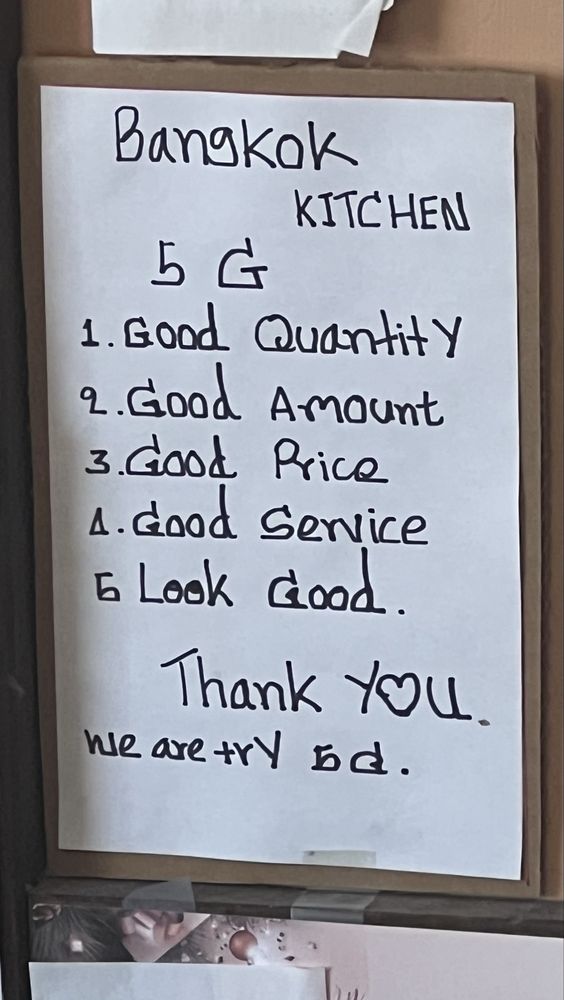 Bangkok
KITCHEN
5 G
1. Good Quantity
2. Good Amount
3. Good Price
4. Good Service
5 Look Good.
Thank YOU.
We are try 5G.